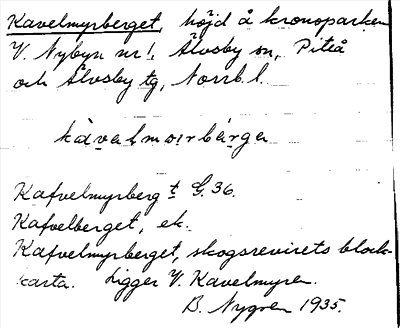 Kavelmyrberget, höjd å kronoparken
V. Nybyn nr 1, Älvsby sn, Piteå
och Älvsby tg, Norrb. l.
kàvəlmoırbärgə
Kafvelmyrberg t G. 36.
Kafvelberget, ek.
Kafvelmyrberget, skogsrevirets block-
karta. Ligger V. Kavelmyren.
B. Nygren 1935.